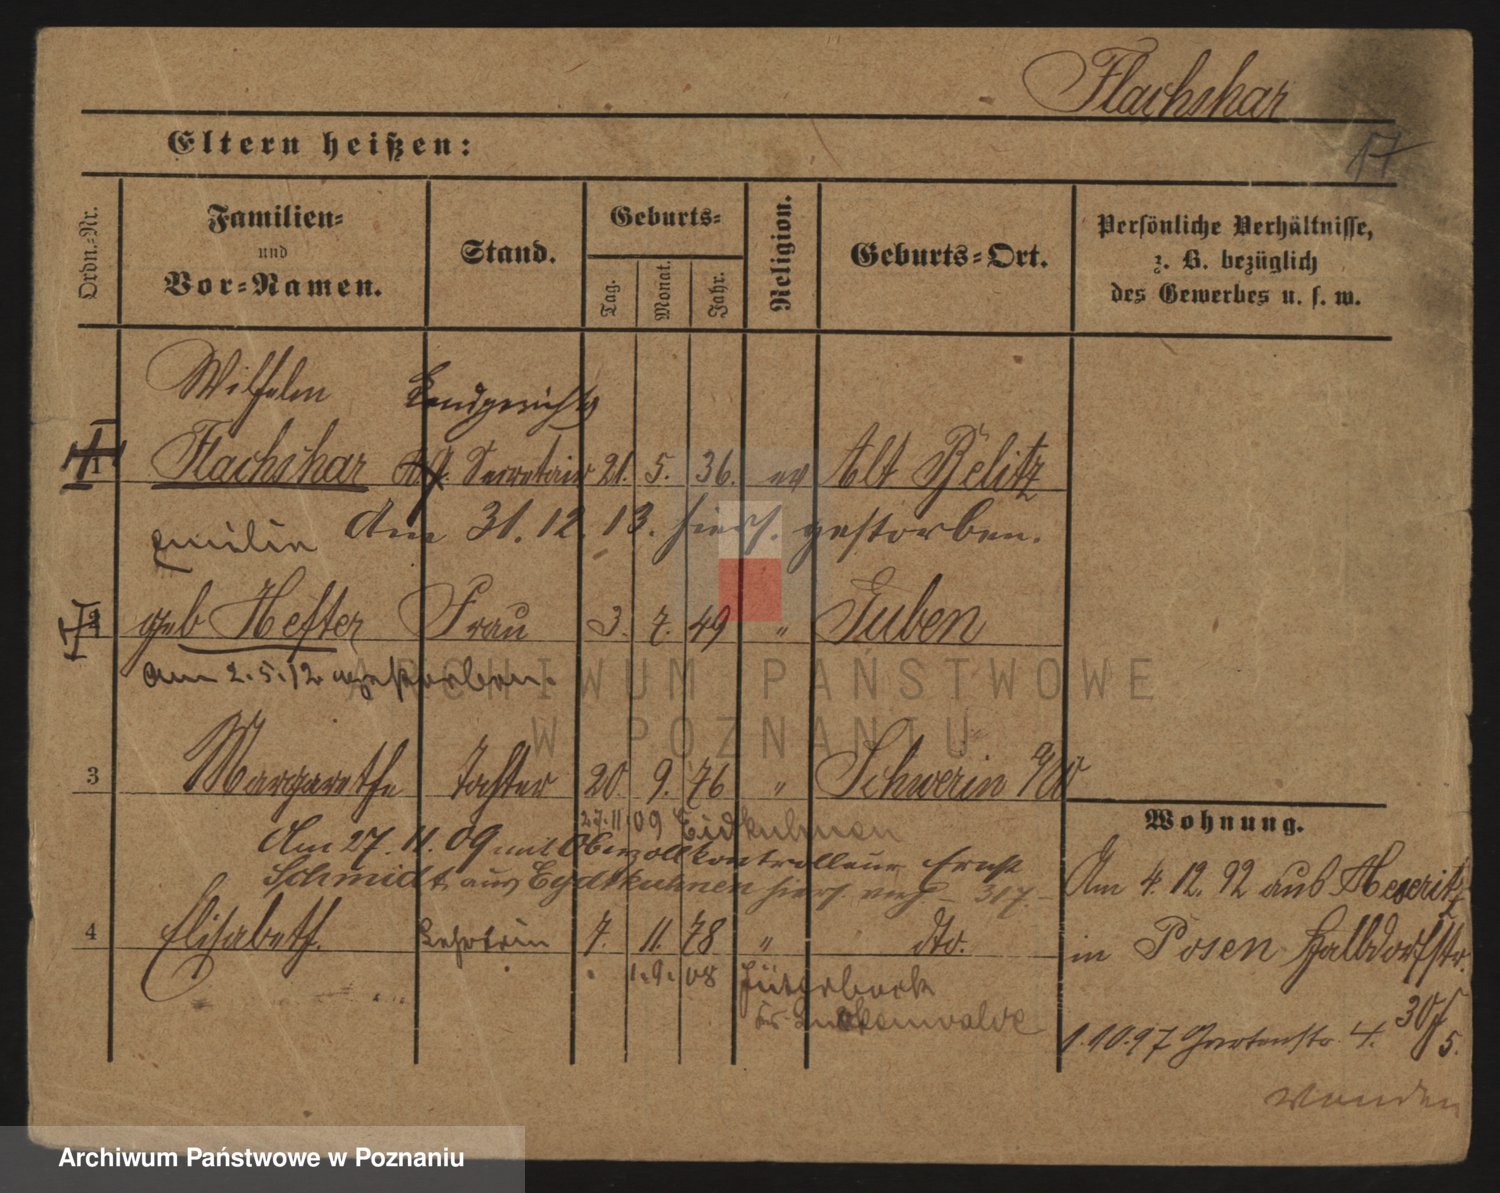 Flachshar
17
Eltern heißen:
Ordn.=Nr.
Familien=
und
Vor=Namen.
Stand.
Geburts=
Tag.
Monat.
Jahr.
Religion.
Geburts=Ort.
Persönliche Verhältnisse,
z. B. bezüglich
des Gewerbes u. s. w.
Wilhelm Landgerichts
1 Flachshar Secretair 21. 5. 36. ev Alt Belitz
Am 31. 12. 13. hiers. gestorben.
Emilie
2 geb Hefter Frau 3. 7. 49 " Guben
Am 2. 5. 12 gestorben.
3 Margarethe Tochter 20. 9. 76 " Schwerin a/W
27. 11. 09 Eidkuhnen
Am 27. 11. 09 mit Oberzollkontrolleur Ernst
Schmidt aus Eydtkuhnen hiers. 317.
4 Elisabeth. Lehrerin 7. 11. 78 " dto.
1. 9. 08 Jüterbock
Luckenwalde
Wohnung.
Am 4. 12. 92 aus Meseritz
in Posen Halbdorfstr.
30
5.
1. 10. 97 Gartenstr. 4.
ARCHIWUM PAŃSTWOWE
W POZNANIU
Archiwum Państwowe w Poznaniu